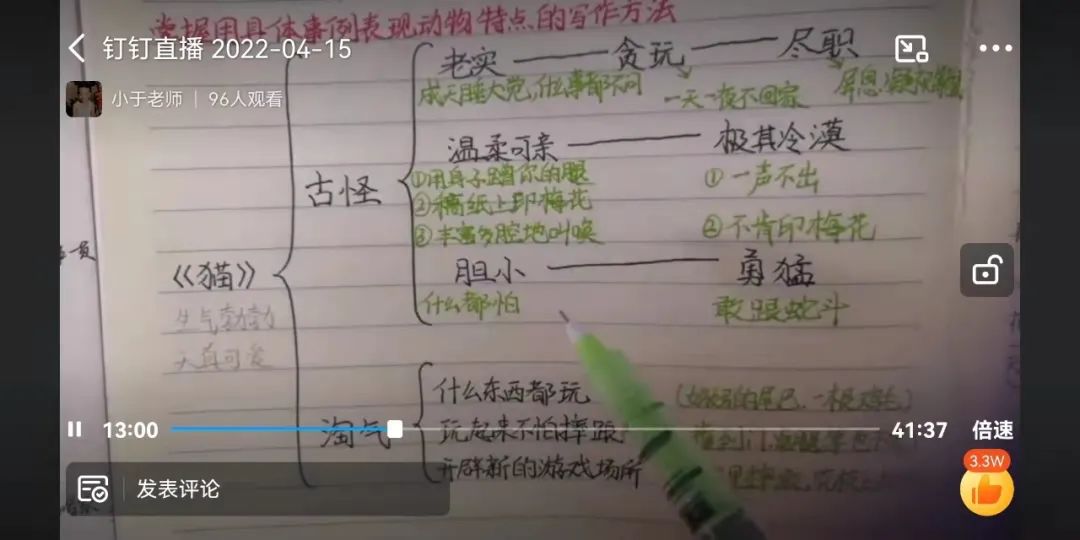 掌握用具体事例表现动物特点的写作方法
钉钉直播 2022-04-15
小于老师 | 96人观看
老实 贪玩 尽职
成天睡大觉,什么事都不问 一天一夜不回家 屏息凝视
温柔可亲 极其冷漠
①用身子蹭你的腿 ①一声不出
②稿纸上印梅花
③丰富多腔地叫唤 ②不肯印梅花
古怪
胆小 勇猛
什么都怕 敢跟蛇斗
《猫》
生气勃勃
天真可爱
什么东西都玩
淘气
玩起来不怕摔跤
开辟新的游戏场所
13:00
41:37
倍速
3.3W
发表评论